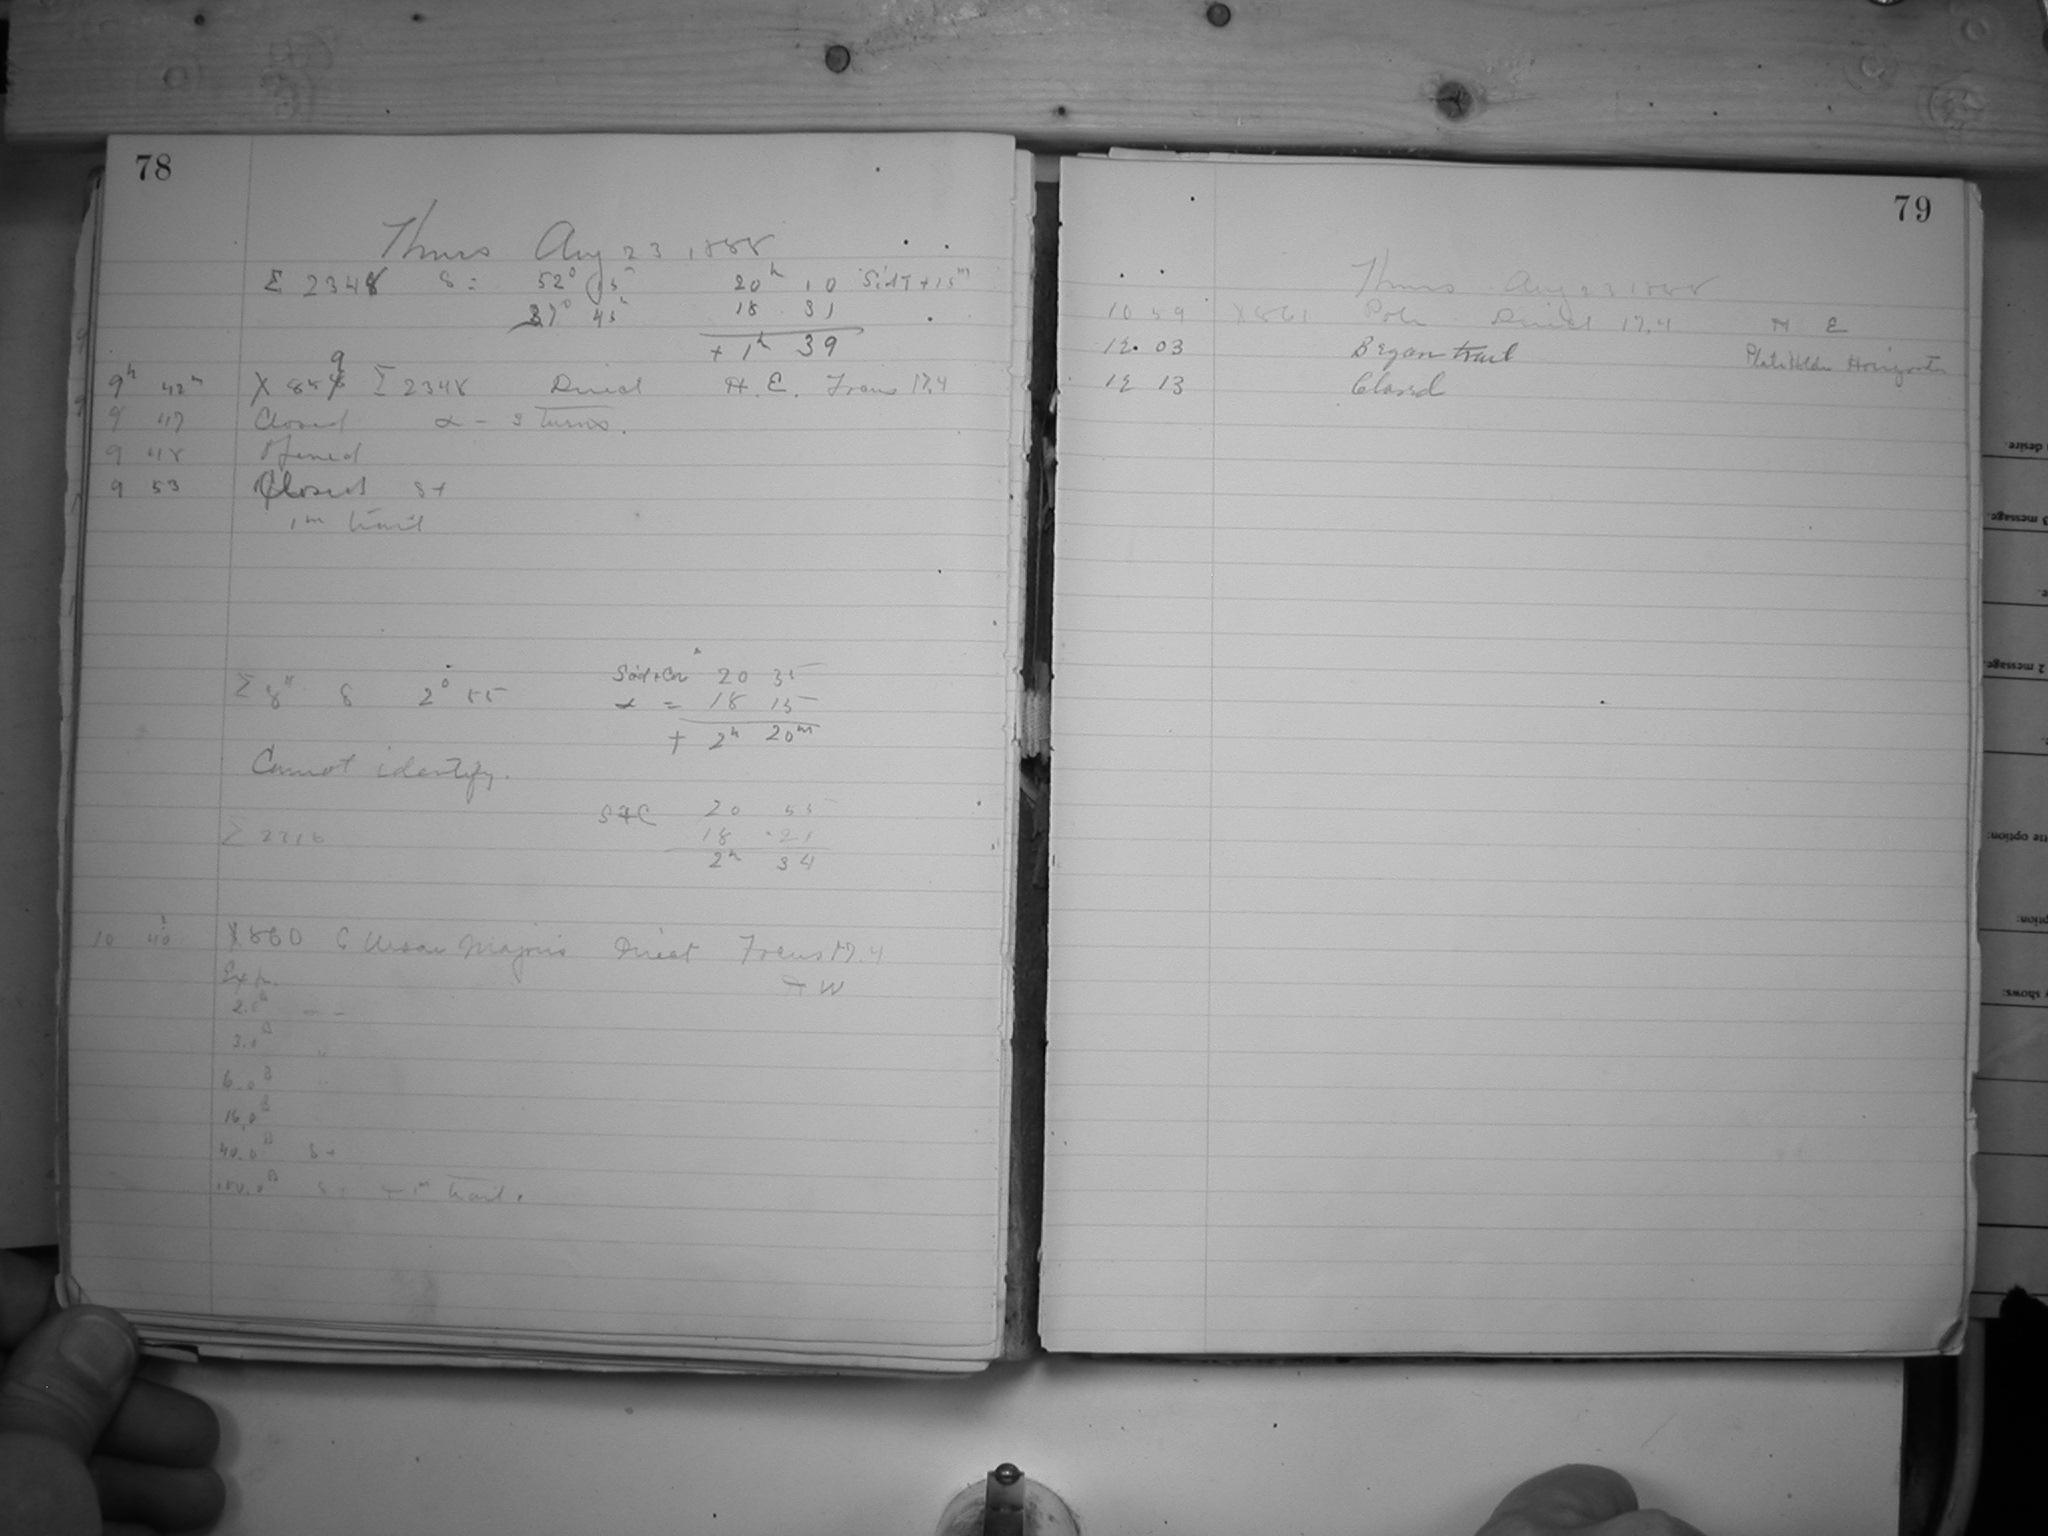 78
Thurs Aug 23, 1888
Σ 2348 δ = 52° 15' 20h 10 Sid T + 15m
37° 45' 18 31
+ 1h 39
9h 42m X 859 Σ 2348 Direct H. E. Focus 17.4
9 47 Closed α - 3 turns.
9 48 Opened
9 53 Closed s+
1m trail
Sid + Cor 20 35
δ 2° 55 α = 18 15
+ 2h 20m
Cannot identify.
S+C 20 55
Σ 2316 18 21
2h 34
10 40 X860 ζ Ursae Majoris Direct Focus 17.4
Exp.
3.0s
6.0s
40.0s s+
1m trail.
79
Thurs Aug 23 1888
10 59 X861 Pole Direct 17.4 H E
12 03 Began trail Plate Holder Horizontal
12 13 Closed